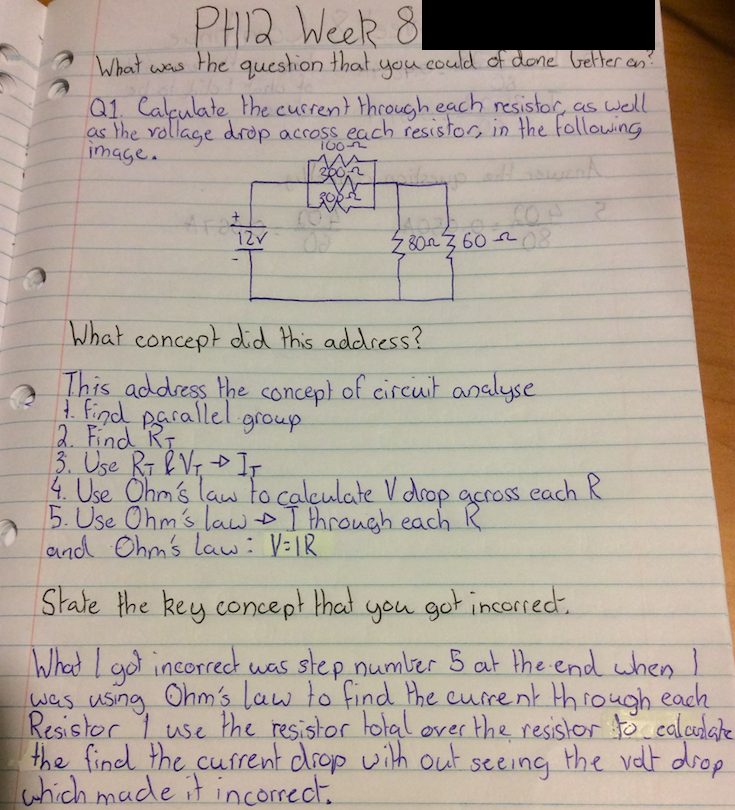 PH12 Week 8
What was the question that you could of done better on?
Q1. Calculate the current through each resistor, as well
as the voltage drop across each resistor, in the following
image.
100Ω
300Ω
+
12V
-
80Ω
60Ω
What concept did this address?
This address the concept of circuit analyse
1. Find parallel group
2. Find RT
3. Use RT & VT → IT
4. Use Ohm's law to calculate V drop across each R
5. Use Ohm's law → I through each R
and Ohm's Law: V=IR
State the key concept that you got incorrect.
What I got incorrect was step number 5 at the end when I
was using Ohm's law to find the current through each
Resistor I use the resistor total over the resistor to calculate
the find the current drop with out seeing the volt drop
which made it incorrect.